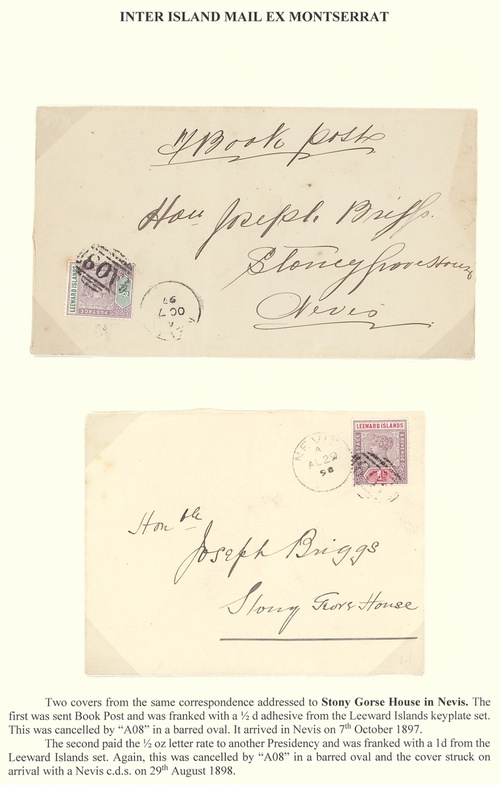 INTER ISLAND MAIL EX MONTSERRAT
Book Post
Hon Joseph Briggs.
Stoney Grove House
Nevis
LEEWARD ISLANDS
POSTAGE
A08
OC 7
97
NEVIS
A
AU 29
98
LEEWARD ISLANDS
Honble
Joseph Briggs
Stony Grove House
Two covers from the same correspondence addressed to Stony Gorse House in Nevis. The
first was sent Book Post and was franked with a ½ d adhesive from the Leeward Islands keyplate set.
This was cancelled by “A08” in a barred oval. It arrived in Nevis on 7th October 1897.
The second paid the ½ oz letter rate to another Presidency and was franked with a 1d from the
Leeward Islands set. Again, this was cancelled by “A08” in a barred oval and the cover struck on
arrival with a Nevis c.d.s. on 29th August 1898.